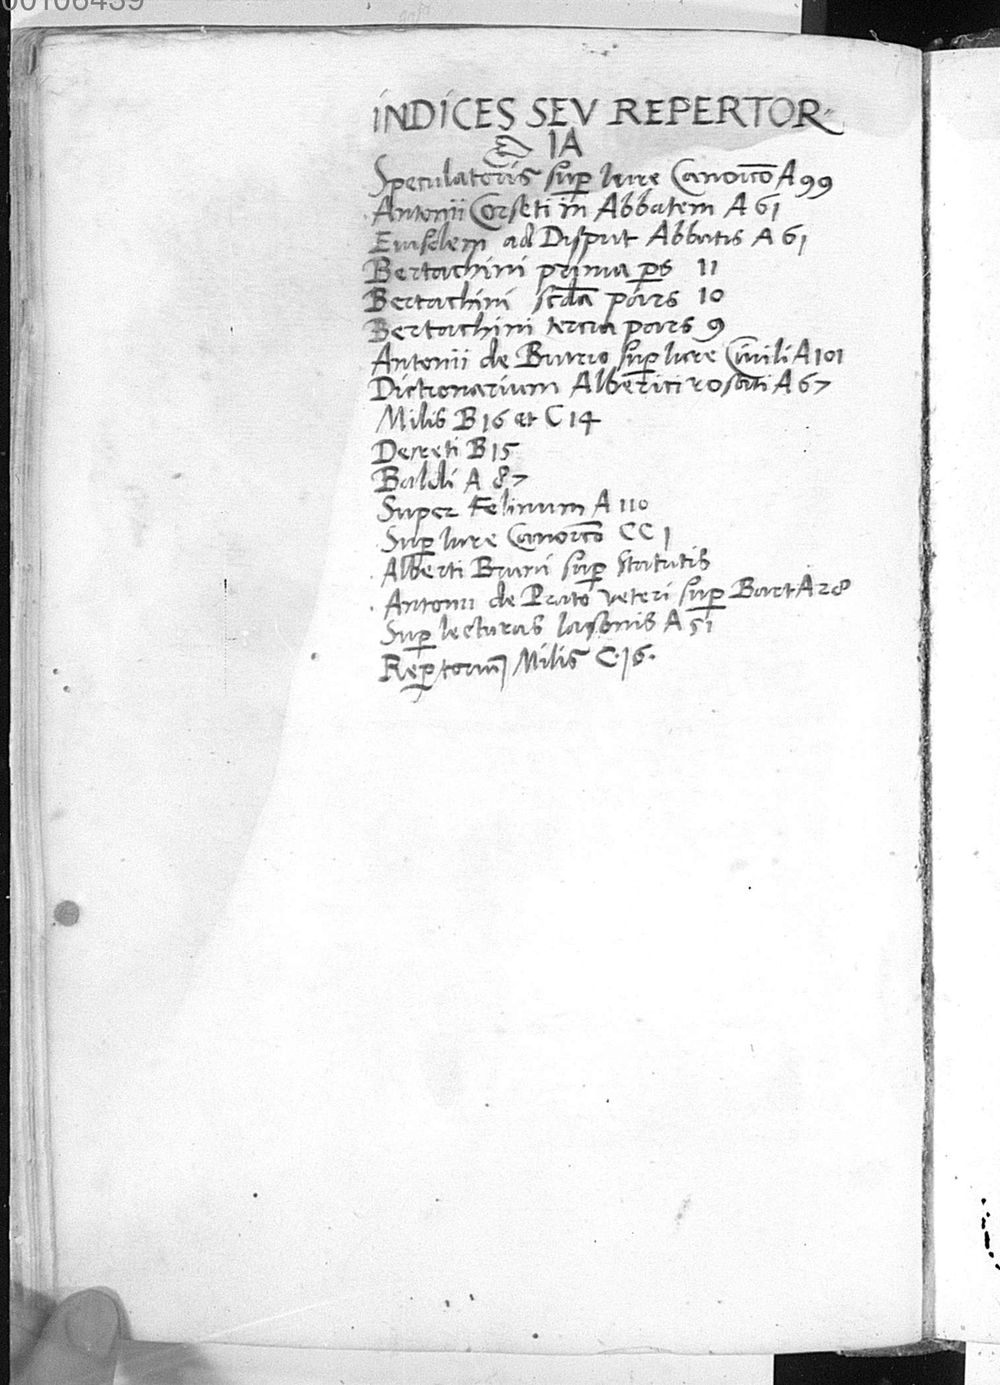 00106439
INDICES SEV REPERTOR
IA
Speculatoris sup Iure Canoico A 99
Antonii Corseti in Abbatem A 61
Eiusdem ad Disput Abbatis A 61
Bertachini prima ps 11
Bertachini scda pars 10
Bertachini tercia pars 9
Antonii de Butrio sup Iure Ciuili A 101
Dictionarium Alberici rosati A 67
Milis B 16 et C 14
Decreti B 15
Baldi A 87
Super Felinum A 110
Sup Iure Canoico CC 1
Alberti Bruni sup Statutis
Antonii de Prato veteri sup Bart A 28
Sup lecturas Iasonis A 51
Reptorium Milis C.16.